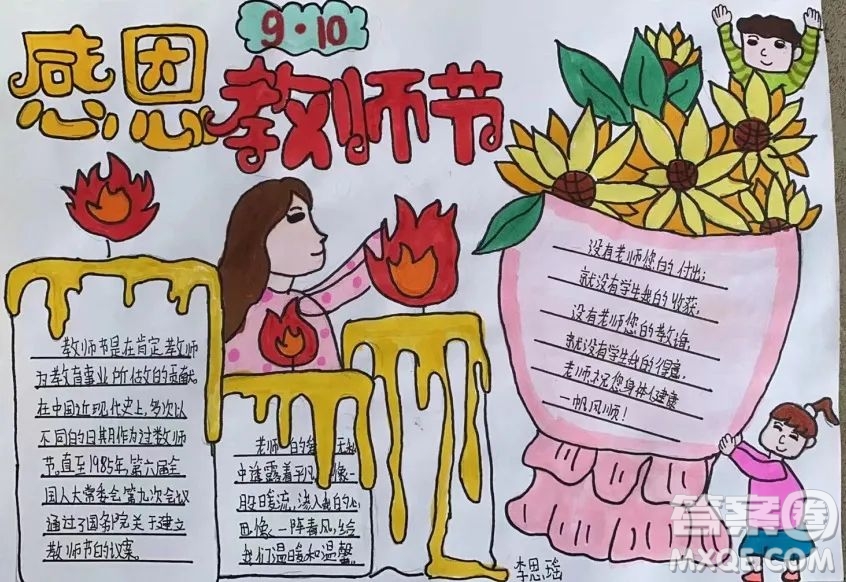 9·10
感恩
教师节
教师节是在肯定教师
为教育事业所做的贡献。
在中国近现代史上,多次以
不同的日期作为过教师
节。直至1985年,第六届全
国人大常委会第九次会议
通过了国务院关于建立
教师节的议案。
老师 的 无
中透露着平凡 像一
股暖流,渗入我的心
田像一阵春风,给
我们温暖和温馨。
没有老师您的付出;
就没有学生我的收获,
没有老师您的教诲,
就没有学生我的得意,
老师祝您身体健康
一帆风顺!
李思瑶
答案圈
MXQE.COM